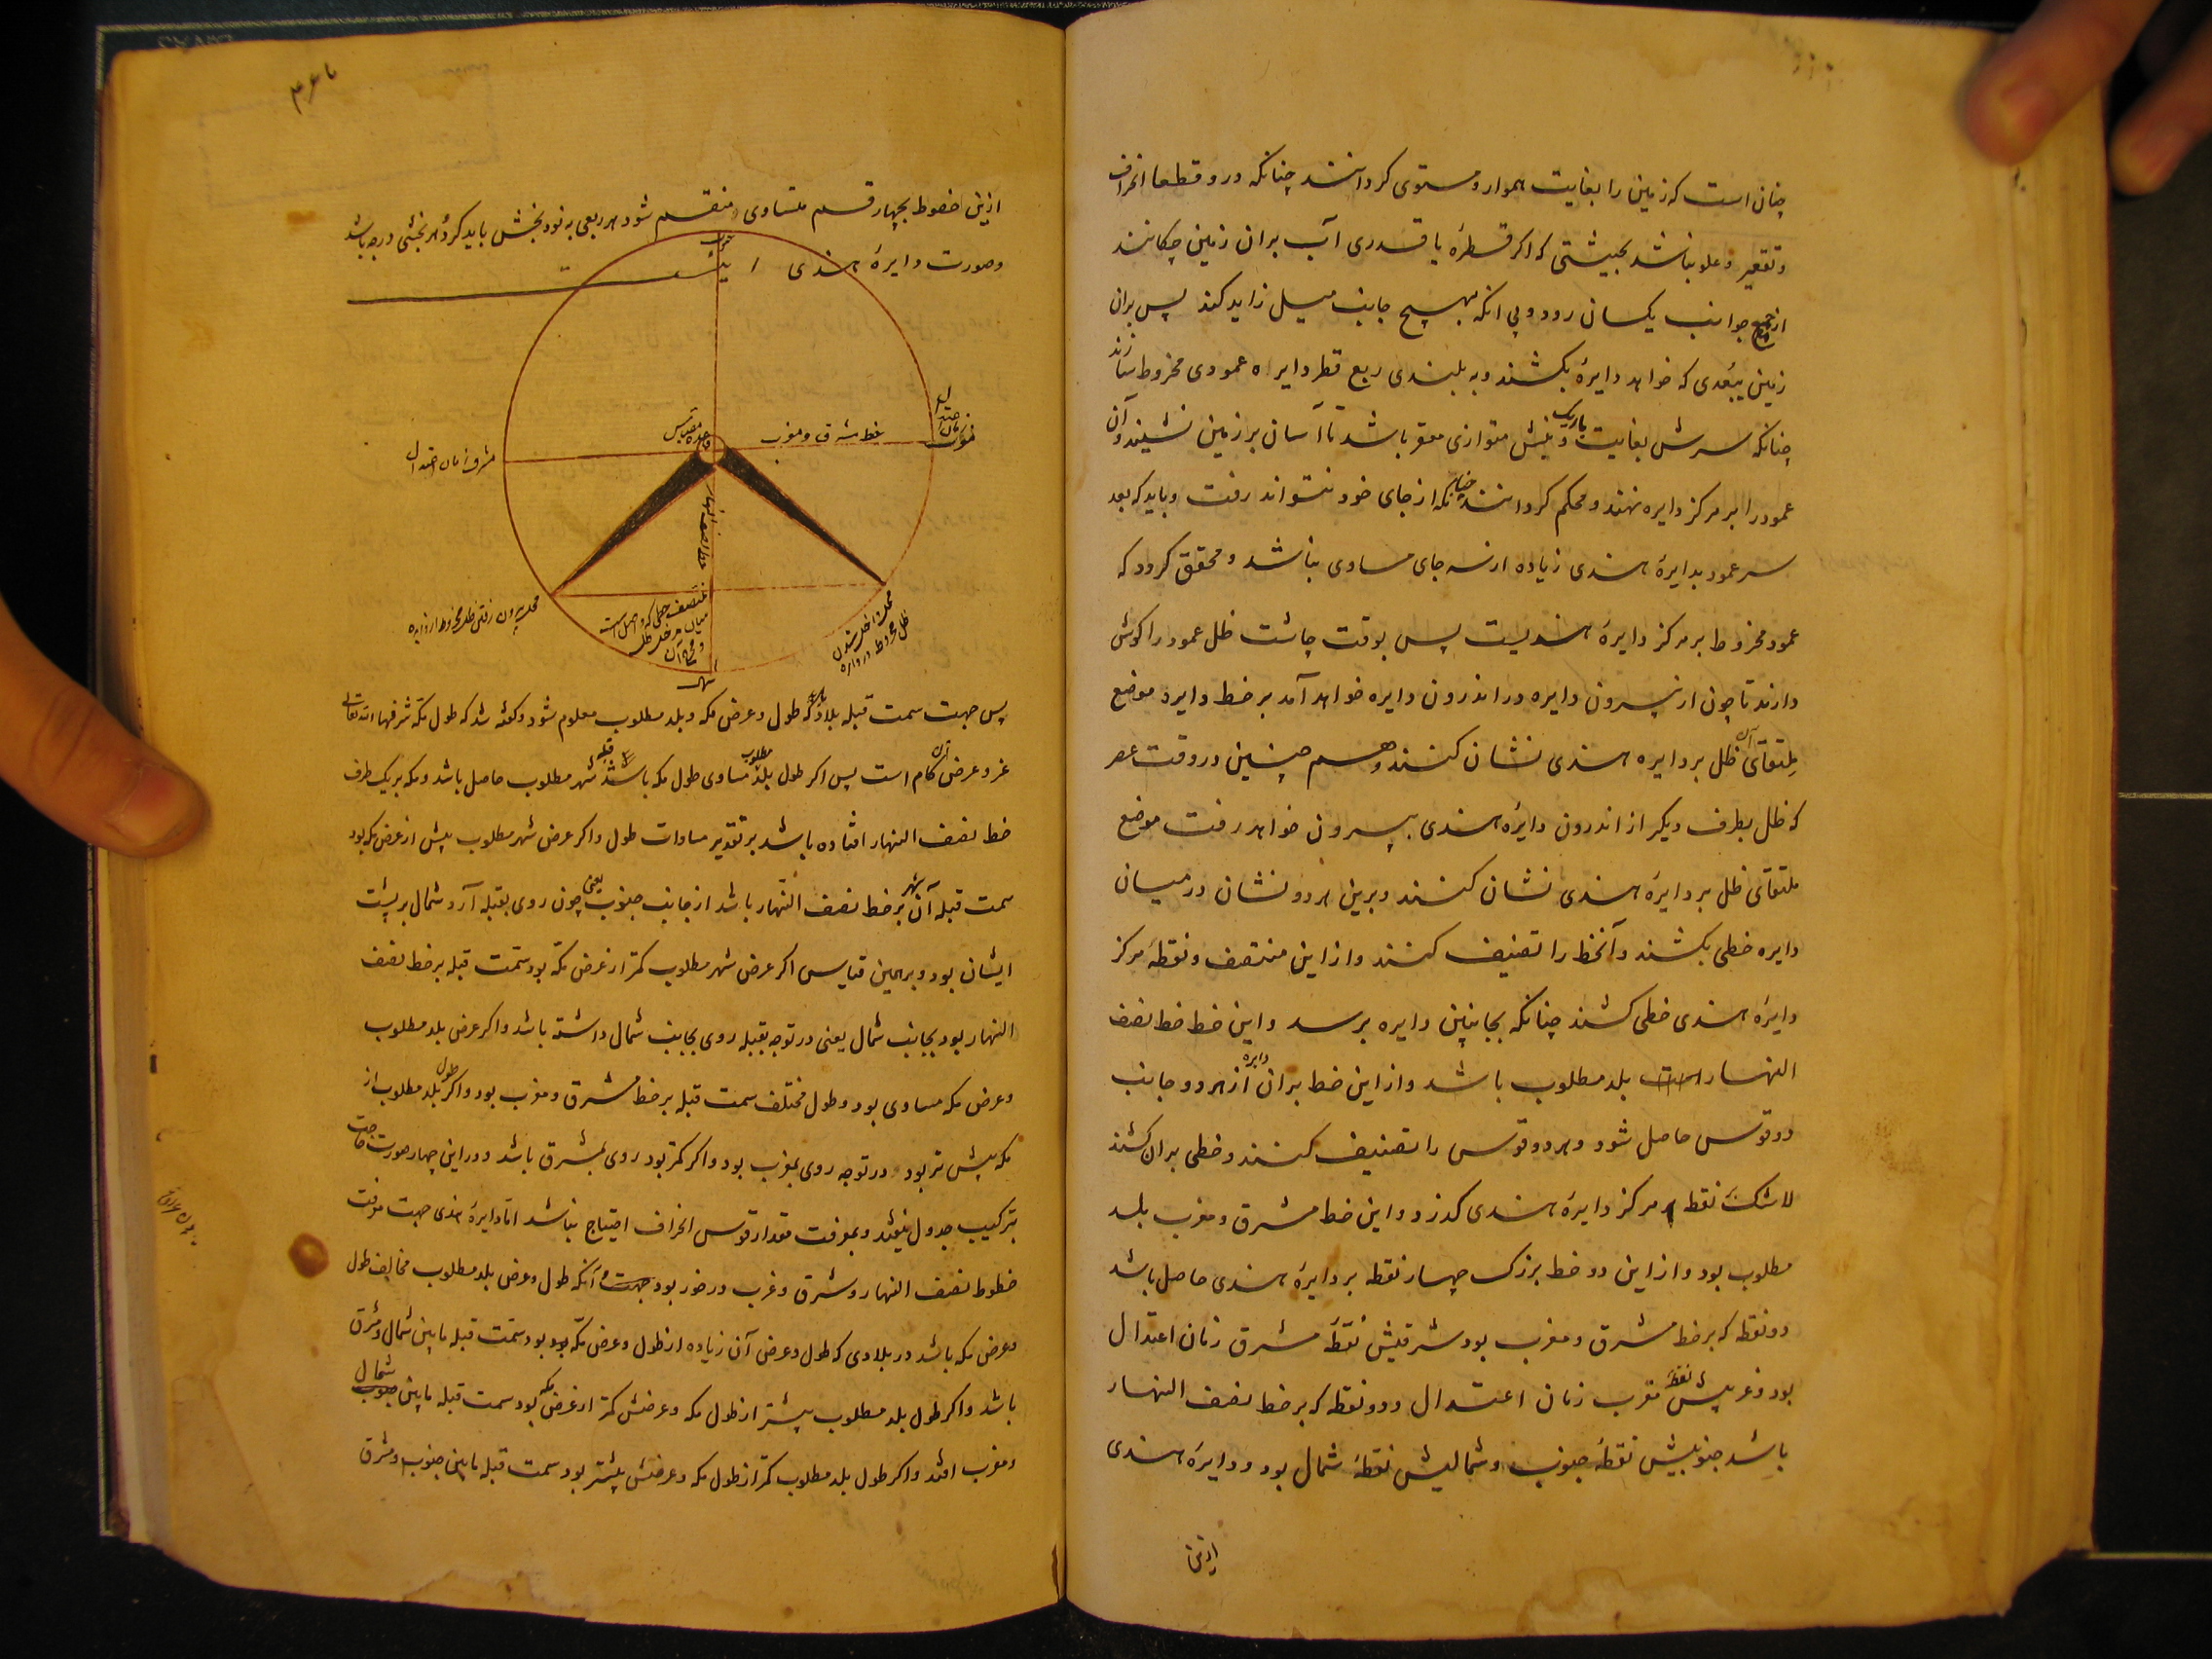 چنان است که زمین را بغایت هموار و مستوی کردانند چنانکه درو قطعا انحراف
و تقعیر و علو نباشد بحیثیتی که اکر قطرهٔ یا قدری آب بران زمین چکانند
از جمیع جوانب یکسان رود و بی انکه بهیچ جانب میل زاید کند پس بران
زمین ببعدی که خواهد دایرهٔ بکشند و به بلندی ربع قطر دایره عمودی مخروط سازند
چنانکه سرش بغایت باریک و بنش متوازی مقعر باشد تا آسان بر زمین نشیند و آن
عمود را بر مرکز دایره نهند و محکم کردانند چنانکه از جای خود نتواند رفت و باید که بعد
سر عمود بدایرهٔ هندی زیاده از سه جای مساوی نباشد و محقق کردد که
عمود مخروط بر مرکز دایرهٔ هندیست پس بوقت چاشت ظل عمود را کوش
دارند تا چون از بیرون دایره در اندرون دایره خواهد آمد بر خط دایره موضع
ملتقای آن ظل بر دایره هندی نشان کنند و هم چنین در وقت عصر
که ظل بطرف دیکر از اندرون دایرهٔ هندی بیرون خواهد رفت موضع
ملتقای ظل بر دایرهٔ هندی نشان کنند و برین هر دو نشان در میان
دایره خطی بکشند و آنخط را تنصیف کنند و از این منتصف و نقطهٔ مرکز
دایرهٔ هندی خطی کشند چنانکه بجانبین دایره برسد و این خط خط نصف
النهار بلد مطلوب باشد و از این خط بران دایره از هر دو جانب
دو قوس حاصل شود و هر دو قوس را تنصیف کنند و خطی بران کشند
لاشک نقطه بر مرکز دایرهٔ هندی کذرد و این خط مشرق و مغرب بلد
مطلوب بود و از این دو خط بزرک چهار نقطه بر دایرهٔ هندی حاصل باشد
دو نقطه که بر خط مشرق و مغرب بود شرقیش نقطهٔ مشرق زمان اعتدال
بود و غربیش نقطهٔ مغرب زمان اعتدال و دو نقطه که بر خط نصف النهار
باشد جنوبیش نقطهٔ جنوب و شمالیش نقطهٔ شمال بود و دایرهٔ هندی
ازین خطوط بچهار قسم متساوی منقسم شود هر ربعی به نود بخش باید کرد هر بخشی درجه باشد
و صورت دایرهٔ هندی اینست
جنوب
قاعده مقیاس
خط مشرق و مغرب
مغرب زمان اعتدال
مشرق زمان اعتدال
خط نصف النهار
محل بیرون رفتن ظل مخروط از دایره
منتصف خطی که واصل است
میان مدخل ظل
و مخرج آن
محل داخل شدن
ظل مخروط در دایره
شمال
پس جهت سمت قبله بلاد باید که طول و عرض مکه و بلد مطلوب معلوم شود و کفته شد که طول مکه شرفها الله تعالی
عز و عرض آن کام است پس اکر طول بلد مطلوب مساوی طول مکه باشد قبله شهر مطلوب حاصل باشد و مکه بر یک طرف
خط نصف النهار افتاده باشد بر تقدیر مساوات طول و اکر عرض شهر مطلوب بیش از عرض مکه بود
سمت قبله آن شهر بر خط نصف النهار باشد از جانب جنوب یعنی چون روی بقبله آرد شمال بر پشت
ایشان بود و برهمین قیاس اکر عرض شهر مطلوب کمتر از عرض مکه بود سمت قبله بر خط نصف
النهار بود بجانب شمال یعنی در توجه بقبله روی بجانب شمال داشته باشد و اکر عرض بلد مطلوب
و عرض مکه مساوی بود و طول مختلف سمت قبله بر خط مشرق و مغرب بود و اکر طول بلد مطلوب از
مکه بیش تر بود در توجه روی بمغرب بود و اکر کمتر بود روی بمشرق باشد و در این چهار صورت حاجت
بترکیب جدول نیفتد و بمعرفت مقدار قوس انحراف احتیاج نباشد اما دایرهٔ هندی جهت معرفت
خطوط نصف النهار و شرق و غرب در خور بود جهت آنکه طول و عرض بلد مطلوب مخالف طول
و عرض مکه باشد در بلادی که طول و عرض آن زیاده از طول و عرض مکه بود سمت قبله مابین شمال و مشرق
باشد و اکر طول بلد مطلوب بیشتر از طول مکه و عرضش کمتر از عرض مکه بود سمت قبله مابین شمال
و مغرب افتد و اکر طول بلد مطلوب کمتر از طول مکه و عرضش بیشتر بود سمت قبله مابین جنوب و مشرق